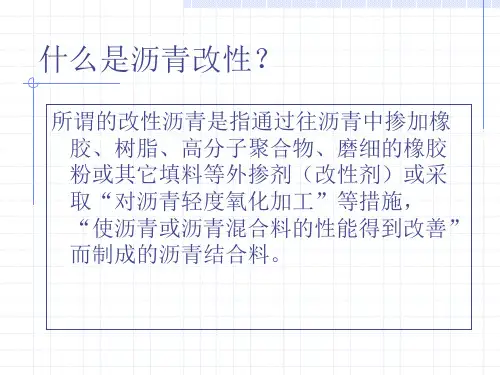 什么是沥青改性?
所谓的改性沥青是指通过往沥青中掺加橡
胶、树脂、高分子聚合物、磨细的橡胶
粉或其它填料等外掺剂（改性剂）或采
取“对沥青轻度氧化加工”等措施，
“使沥青或沥青混合料的性能得到改善”
而制成的沥青结合料。